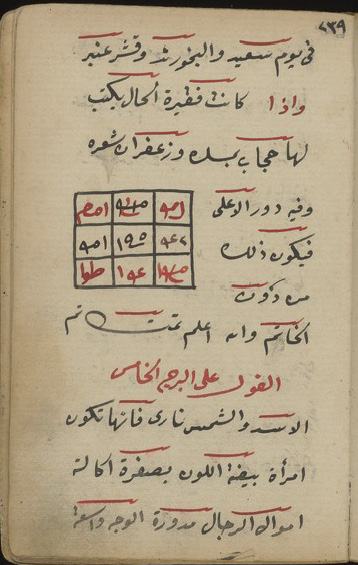 ٢٣٩
في يوم سعيد والبخور ند وقشر عنبر
واذا كانت فقيرة الحال يكتب
لها حجاب بمسك وزعفران شعره
وفيه دور الاعلى
فيكون ذلك
من دون
الخاتم والله اعلم تمت تم
القول على البرج الخامس
الاسد والشمس نارى فانها تكون
امرأة بيضة اللون بصفرة اكالة
اموال الرجال مدورة الوجه واسعة